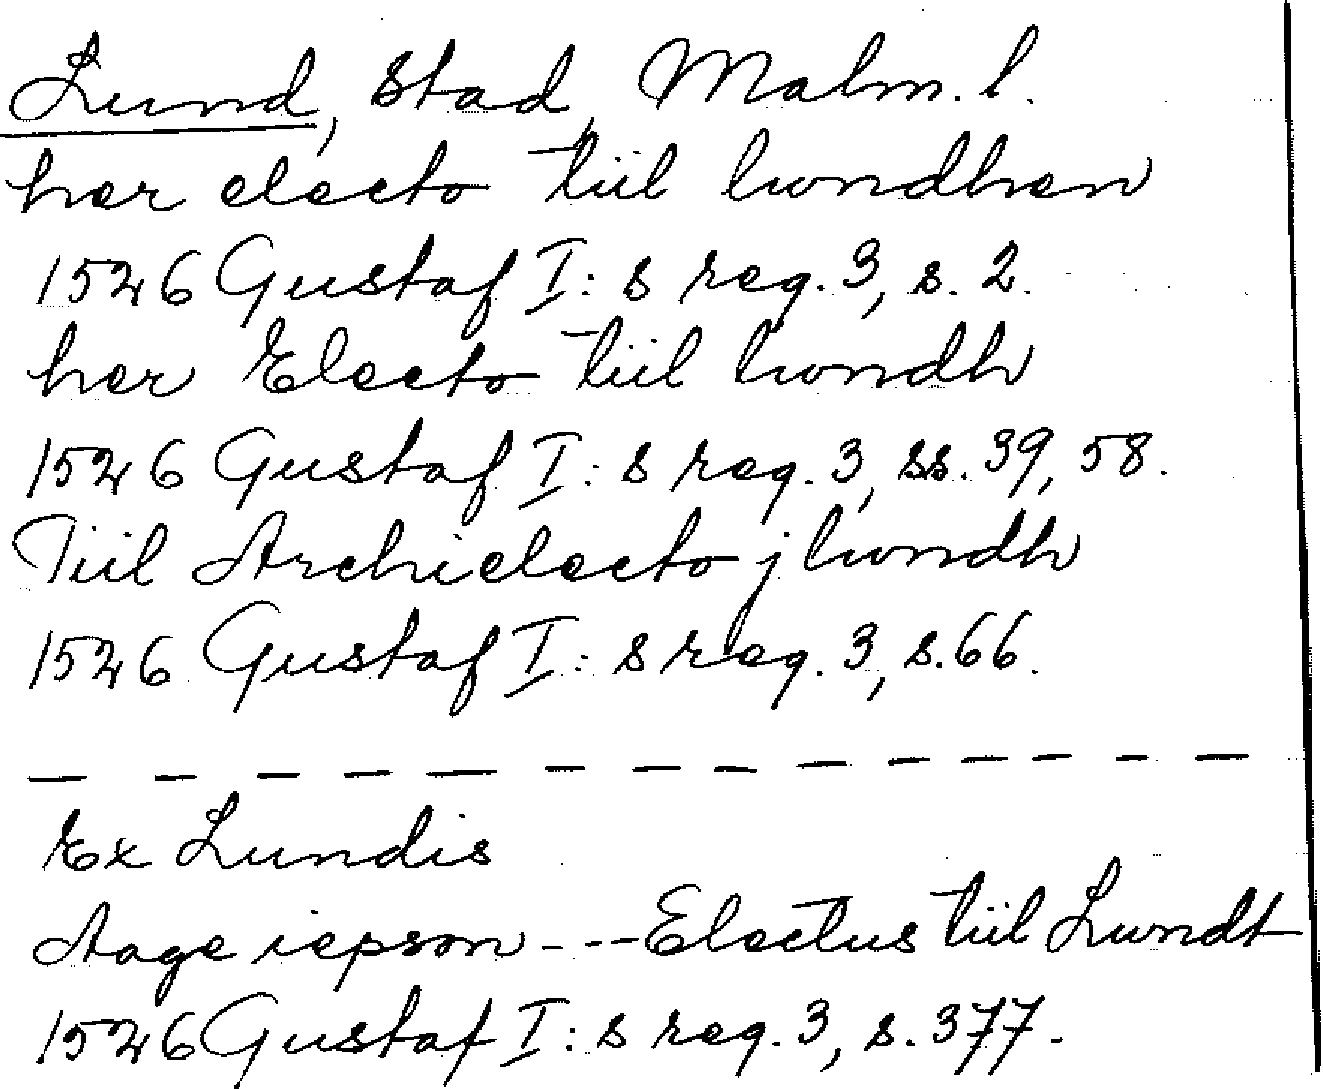 Lund, Stad, Malm. l.
her electo tiil lwndhen
1526 Gustaf I: s reg. 3, s. 2.
her Electo tiil lwndh
1526 Gustaf I: s reg. 3, ss. 39, 58.
Tiil Archielecto j lwndh
1526 Gustaf I: s reg. 3, s. 66.
Ex Lundis
Aage iepson --- Electus tiil Lwndt
1526 Gustaf I: s reg. 3, s. 377.